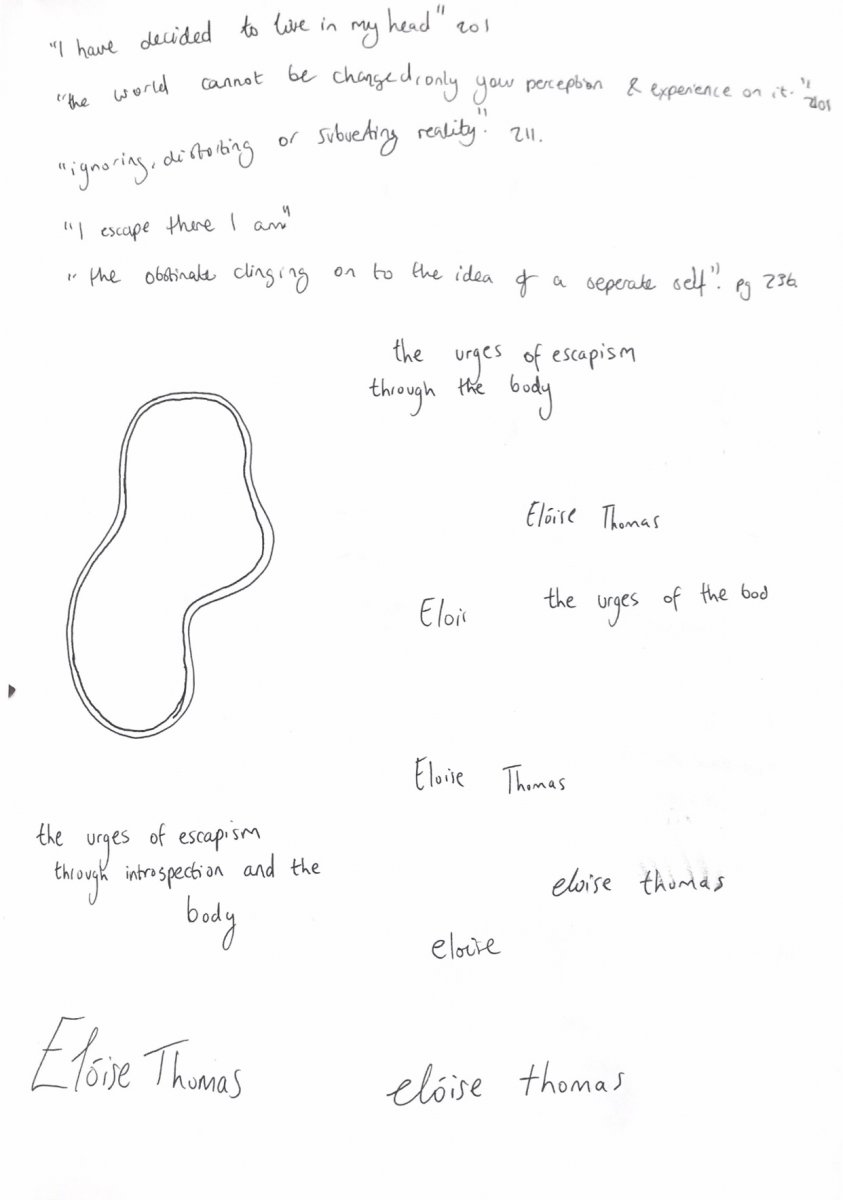 "I have decided to live in my head" 201
"the world cannot be changed, only your perception & experience on it." 201
"ignoring, distorting or subverting reality". 211.
"I escape there I am"
"the obstinate clinging on to the idea of a seperate self". pg 236.
the urges of escapism
through the body
Elóise Thomas
Eloic
the urges of the bod
Eloise Thomas
the urges of escapism
through introspection and the
body
eloise thomas
eloise
Elóise Thomas
elóise thomas